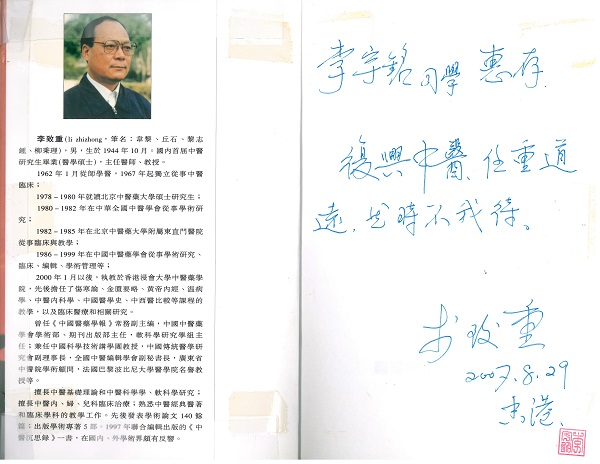 李致重(li zhizhong，筆名；韋黎、丘石、黎志
鍾、柳秉理)，男，生於 1944 年 10 月。國內首屆中醫
研究生畢業(醫學碩士)，主任醫師、教授。
1962 年 1 月從師學醫，1967 年起獨立從事中醫
臨床；
1978－1980 年就讀北京中醫藥大學碩士研究生；
1980－1982 年在中華全國中醫學會從事學術研
究；
1982－1985 年在北京中醫藥大學附屬東直門醫院
從事臨床與教學；
1986－1999 年在中國中醫藥學會從事學術研究、
臨床、編輯、學術管理等；
2000 年 1 月以後，執教於香港浸會大學中醫藥學
院，先後擔任了傷寒論、金匱要略、黃帝內經、溫病
學、中醫內科學、中國醫學史、中西醫比較等課程的
教學，以及臨床醫療和相關研究。
曾任《中國醫藥學報》常務副主編，中國中醫藥
學會學術部、期刊出版部主任，軟科學研究學組主
任；兼任中國科學技術講學團教授，中國傳統醫學研
究會副理事長，全國中醫編輯學會副秘書長，廣東省
中醫院學術顧問，法國巴黎波比尼大學醫學院名譽教
授等。
擅長中醫基礎理論和中醫科學學、軟科學研究；
擅長中醫內、婦、兒科臨床治療；熟悉中醫經典醫著
和臨床學科的教學工作。先後發表學術論文 140 餘
篇；出版學術專著 5 部。1997年聯合編輯出版的《中
醫沉思录》一書，在國內、外學術界頗有反響。
李宇銘同學 惠存.
復興中醫，任重道
遠，
時不我待。
李致重
2007.8.29
香港.